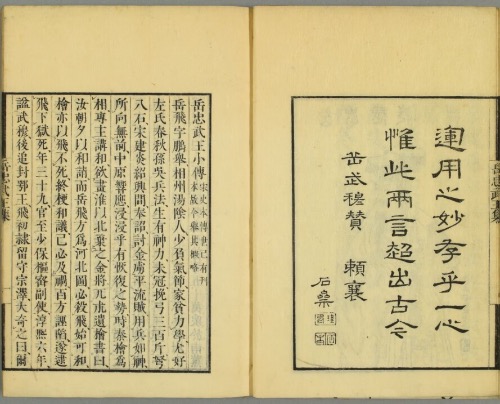 運用之妙存乎一心
惟此兩言超出古今
岳武穆贊 賴襄
岳忠武王小傳
宋史本傳世已有刊
本故今舉其概略
岳飛字鵬舉相州湯陰人少負氣節家貧力學尤好
左氏春秋孫吳兵法生有神力未冠挽弓三百斤弩
八石宋建炎紹興間奉詔討金虜平流賊用兵如神
所向無前中原響應浸浸乎有恢復之勢時秦檜爲
相專主講和欲畫淮以北棄之金將兀朮遺檜書曰
汝朝夕以和請而岳飛方爲河北圖必殺飛始可和
檜亦以飛不死終梗和議己必及禍百方誣陷遂逮
飛下獄死年三十九官至少保樞密副使淳熙六年
諡武穆後追封鄂王飛初隸留守宗澤大奇之曰爾